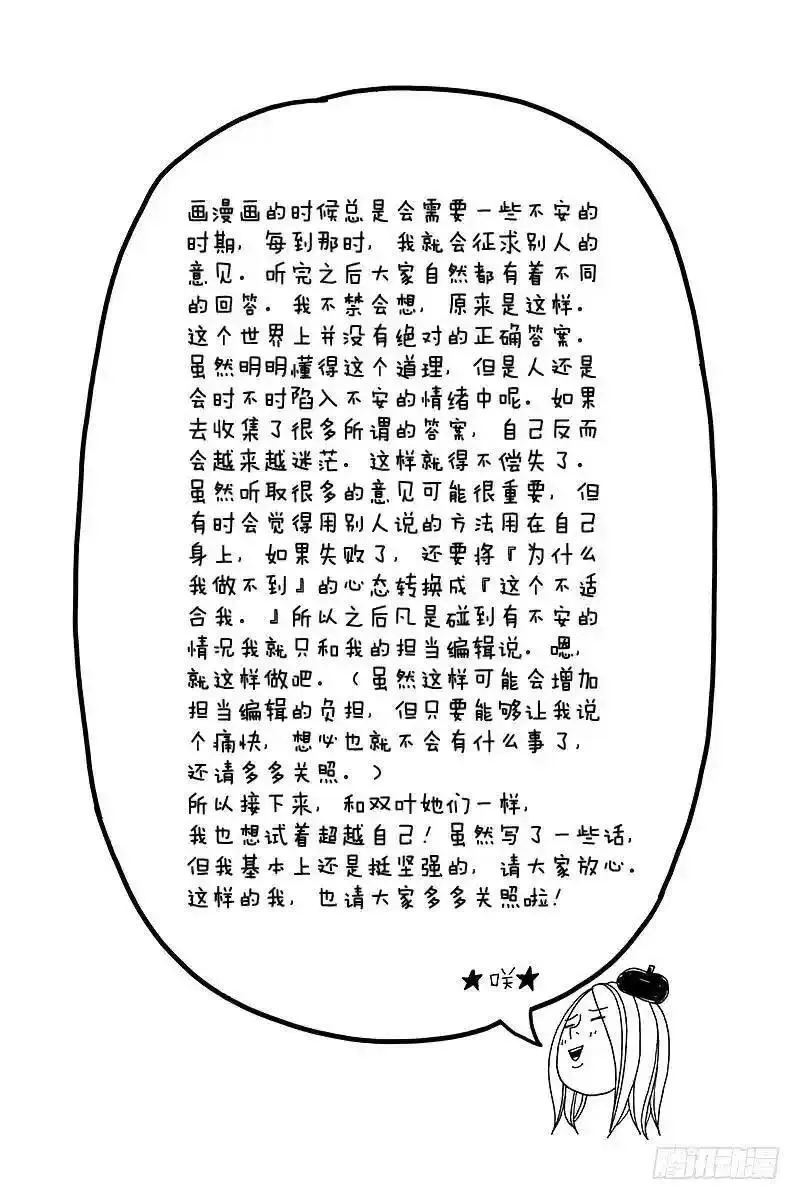 画漫画的时候总是会需要一些不安的
时期，每到那时，我就会征求别人的
意见。听完之后大家自然都有着不同
的回答。我不禁会想，原来是这样。
这个世界上并没有绝对的正确答案。
虽然明明懂得这个道理，但是人还是
会时不时陷入不安的情绪中呢。如果
去收集了很多所谓的答案，自己反而
会越来越迷茫。这样就得不偿失了。
虽然听取很多的意见可能很重要，但
有时会觉得用别人说的方法用在自己
身上，如果失败了，还要将『为什么
我做不到』的心态转换成『这个不适
合我。』所以之后凡是碰到有不安的
情况我就只和我的担当编辑说。嗯，
就这样做吧。（虽然这样可能会增加
担当编辑的负担，但只要能够让我说
个痛快，想必也就不会有什么事了，
还请多多关照。）
所以接下来，和双叶她们一样，
我也想试着超越自己！虽然写了一些话，
但我基本上还是挺坚强的，请大家放心。
这样的我，也请大家多多关照啦！
★咲★
腾讯动漫